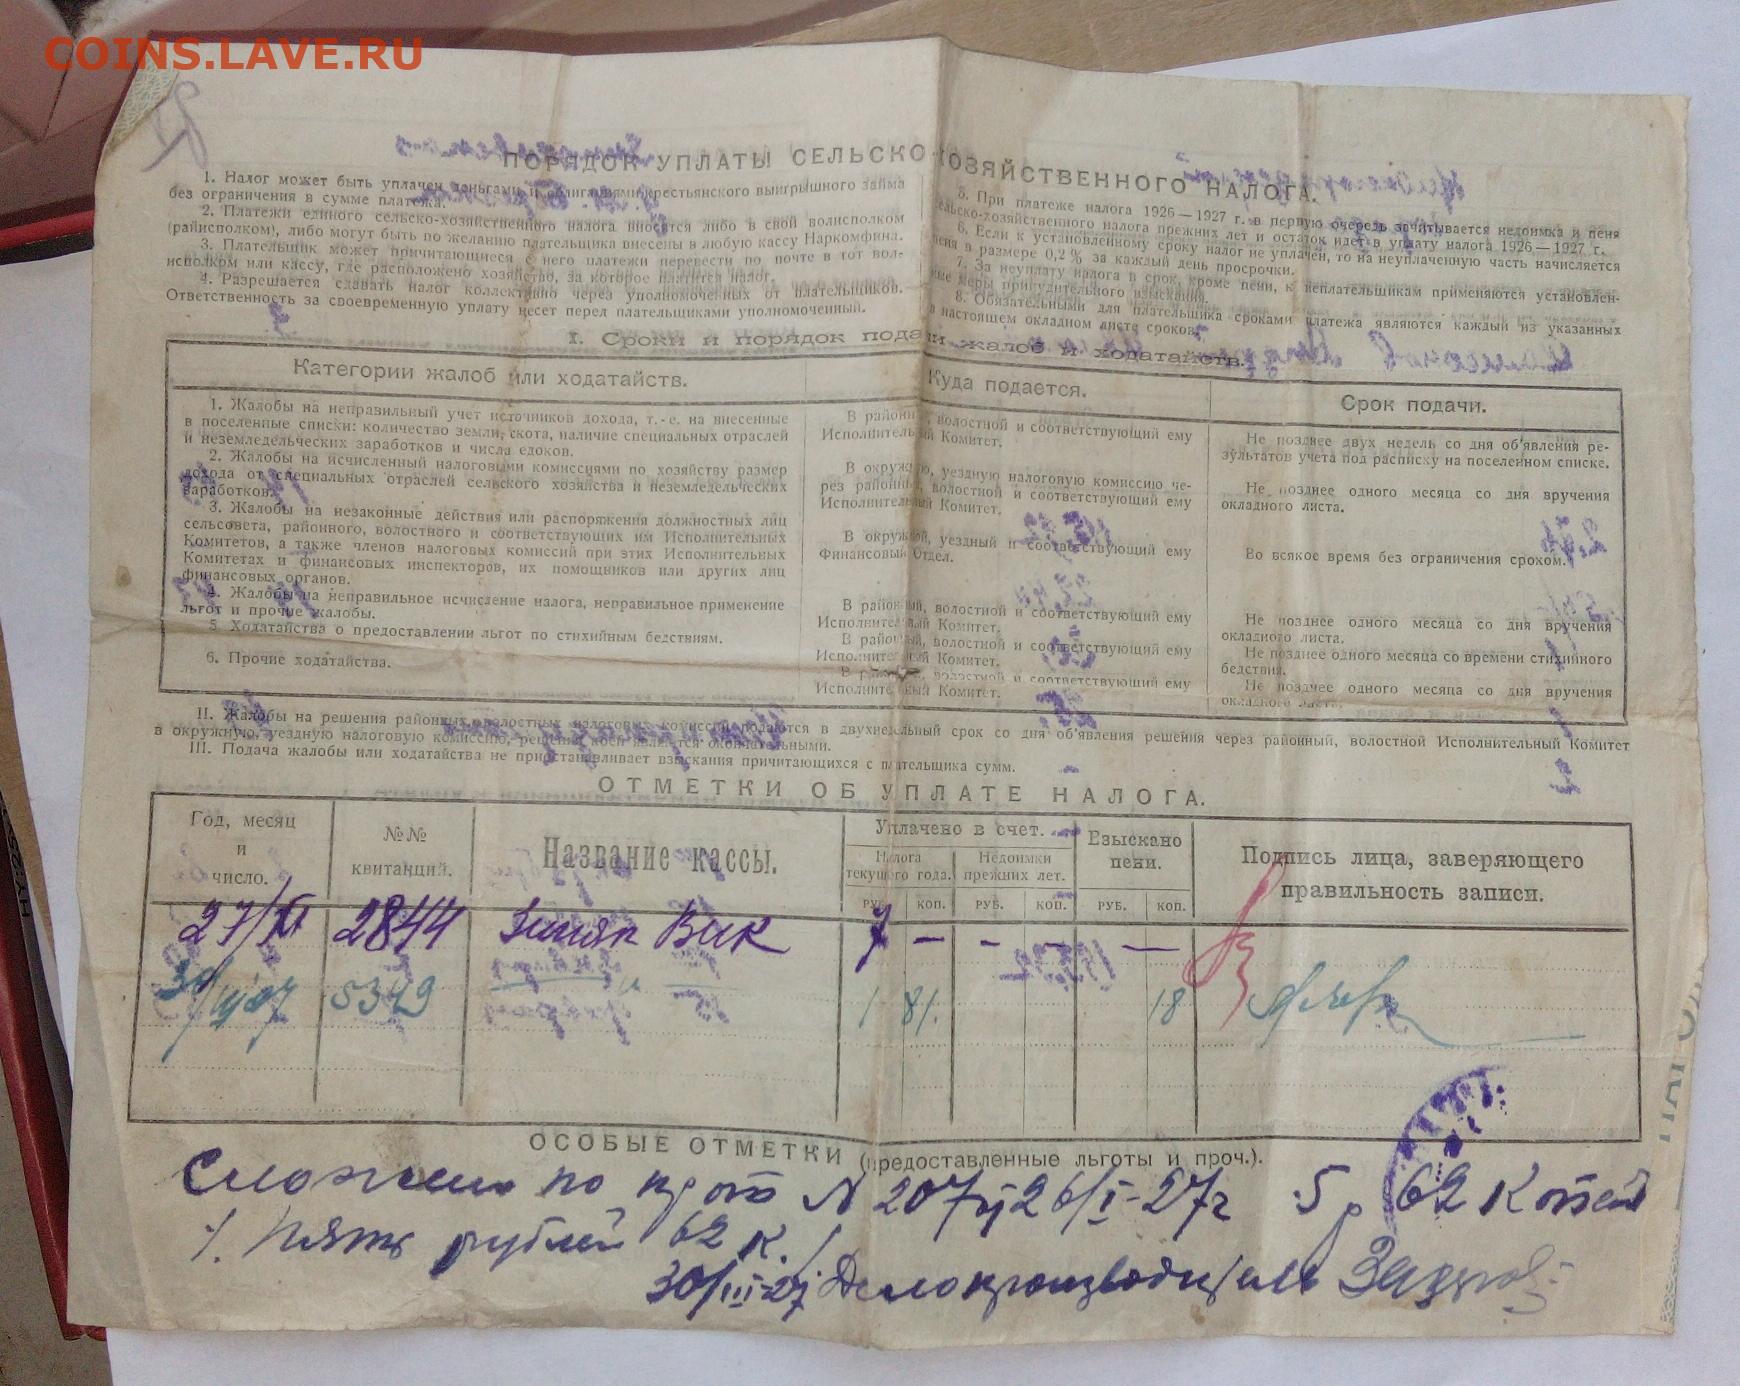 COINS.LAVE.RU
ПОРЯДОК УПЛАТЫ СЕЛЬСКО-ХОЗЯЙСТВЕННОГО НАЛОГА.
1. Налог может быть уплачен деньгами и облигациями крестьянского выигрышного займа
без ограничения в сумме платежа.
2. Платежи единого сельско-хозяйственного налога вносятся либо в свой волисполком
(райисполком), либо могут быть по желанию плательщика внесены в любую кассу Наркомфина.
3. Плательщик может причитающиеся с него платежи перевести по почте в тот вол-
исполком или кассу, где расположено хозяйство, за которое платится налог.
4. Разрешается сдавать налог коллективно через уполномоченных от плательщиков.
Ответственность за своевременную уплату несет перед плательщиками уполномоченный.
5. При платеже налога 1926—1927 г. в первую очередь засчитывается недоимка и пеня
сельско-хозяйственного налога прежних лет и остаток идет в уплату налога 1926—1927 г.
6. Если к установленному сроку налог не уплачен, то на неуплаченную часть начисляется
пеня в размере 0,2% за каждый день просрочки.
7. За неуплату налога в срок, кроме пени, к неплательщикам применяются установлен-
ные меры принудительного взыскания.
8. Обязательными для плательщика сроками платежа являются каждый из указанных
в настоящем окладном листе сроков.
I. Сроки и порядок подачи жалоб и ходатайств.
Категории жалоб или ходатайств.
Куда подается.
Срок подачи.
1. Жалобы на неправильный учет источников дохода, т.-е. на внесенные
в поселенные списки: количество земли, скота, наличие специальных отраслей
и неземледельческих заработков и числа едоков.
В районный, волостной и соответствующий ему
Исполнительный Комитет.
Не позднее двух недель со дня об'явления ре-
зультатов учета под расписку на поселенном списке.
2. Жалобы на исчисленный налоговыми комиссиями по хозяйству размер
дохода от специальных отраслей сельского хозяйства и неземледельческих
заработков.
В окружную, уездную налоговую комиссию че-
рез районный, волостной и соответствующий ему
Исполнительный Комитет.
Не позднее одного месяца со дня вручения
окладного листа.
3. Жалобы на незаконные действия или распоряжения должностных лиц
сельсовета, районного, волостного и соответствующих им Исполнительных
Комитетов, а также членов налоговых комиссий при этих Исполнительных
Комитетах и финансовых инспекторов, их помощников или других лиц
финансовых органов.
В окружной, уездный и соответствующий ему
Финансовый Отдел.
Во всякое время без ограничения сроком.
4. Жалобы на неправильное исчисление налога, неправильное применение
льгот и прочие жалобы.
В районный, волостной и соответствующий ему
Исполнительный Комитет.
Не позднее одного месяца со дня вручения
окладного листа.
5. Ходатайства о предоставлении льгот по стихийным бедствиям.
В районный, волостной и соответствующий ему
Исполнительный Комитет.
Не позднее одного месяца со времени стихийного
бедствия.
6. Прочие ходатайства.
В районный, волостной и соответствующий ему
Исполнительный Комитет.
Не позднее одного месяца со дня вручения
окладного листа.
II. Жалобы на решения районных, волостных налоговых комиссий подаются в двухнедельный срок со дня об'явления решения через районный, волостной Исполнительный Комитет
в окружную, уездную налоговую комиссию, решения коей являются окончательными.
III. Подача жалобы или ходатайства не приостанавливает взыскания причитающихся с плательщика сумм.
ОТМЕТКИ ОБ УПЛАТЕ НАЛОГА.
Год, месяц
и
число.
№№
квитанций.
Название кассы.
Уплачено в счет.
Налога
текущего года.
Недоимки
прежних лет.
Взыскано
пени.
Подпись лица, заверяющего
правильность записи.
РУБ. КОП. РУБ. КОП. РУБ. КОП.
27/XI 2844 Вик 7 — - — —
30/III 27 5349 1 81. 18
ОСОБЫЕ ОТМЕТКИ (предоставленные льготы и проч.).
Сложено по прот N 207 26/I-27г 5р 62 Копей
/. Пять рублей 62 к./
30/III-27 Делопроизводитель